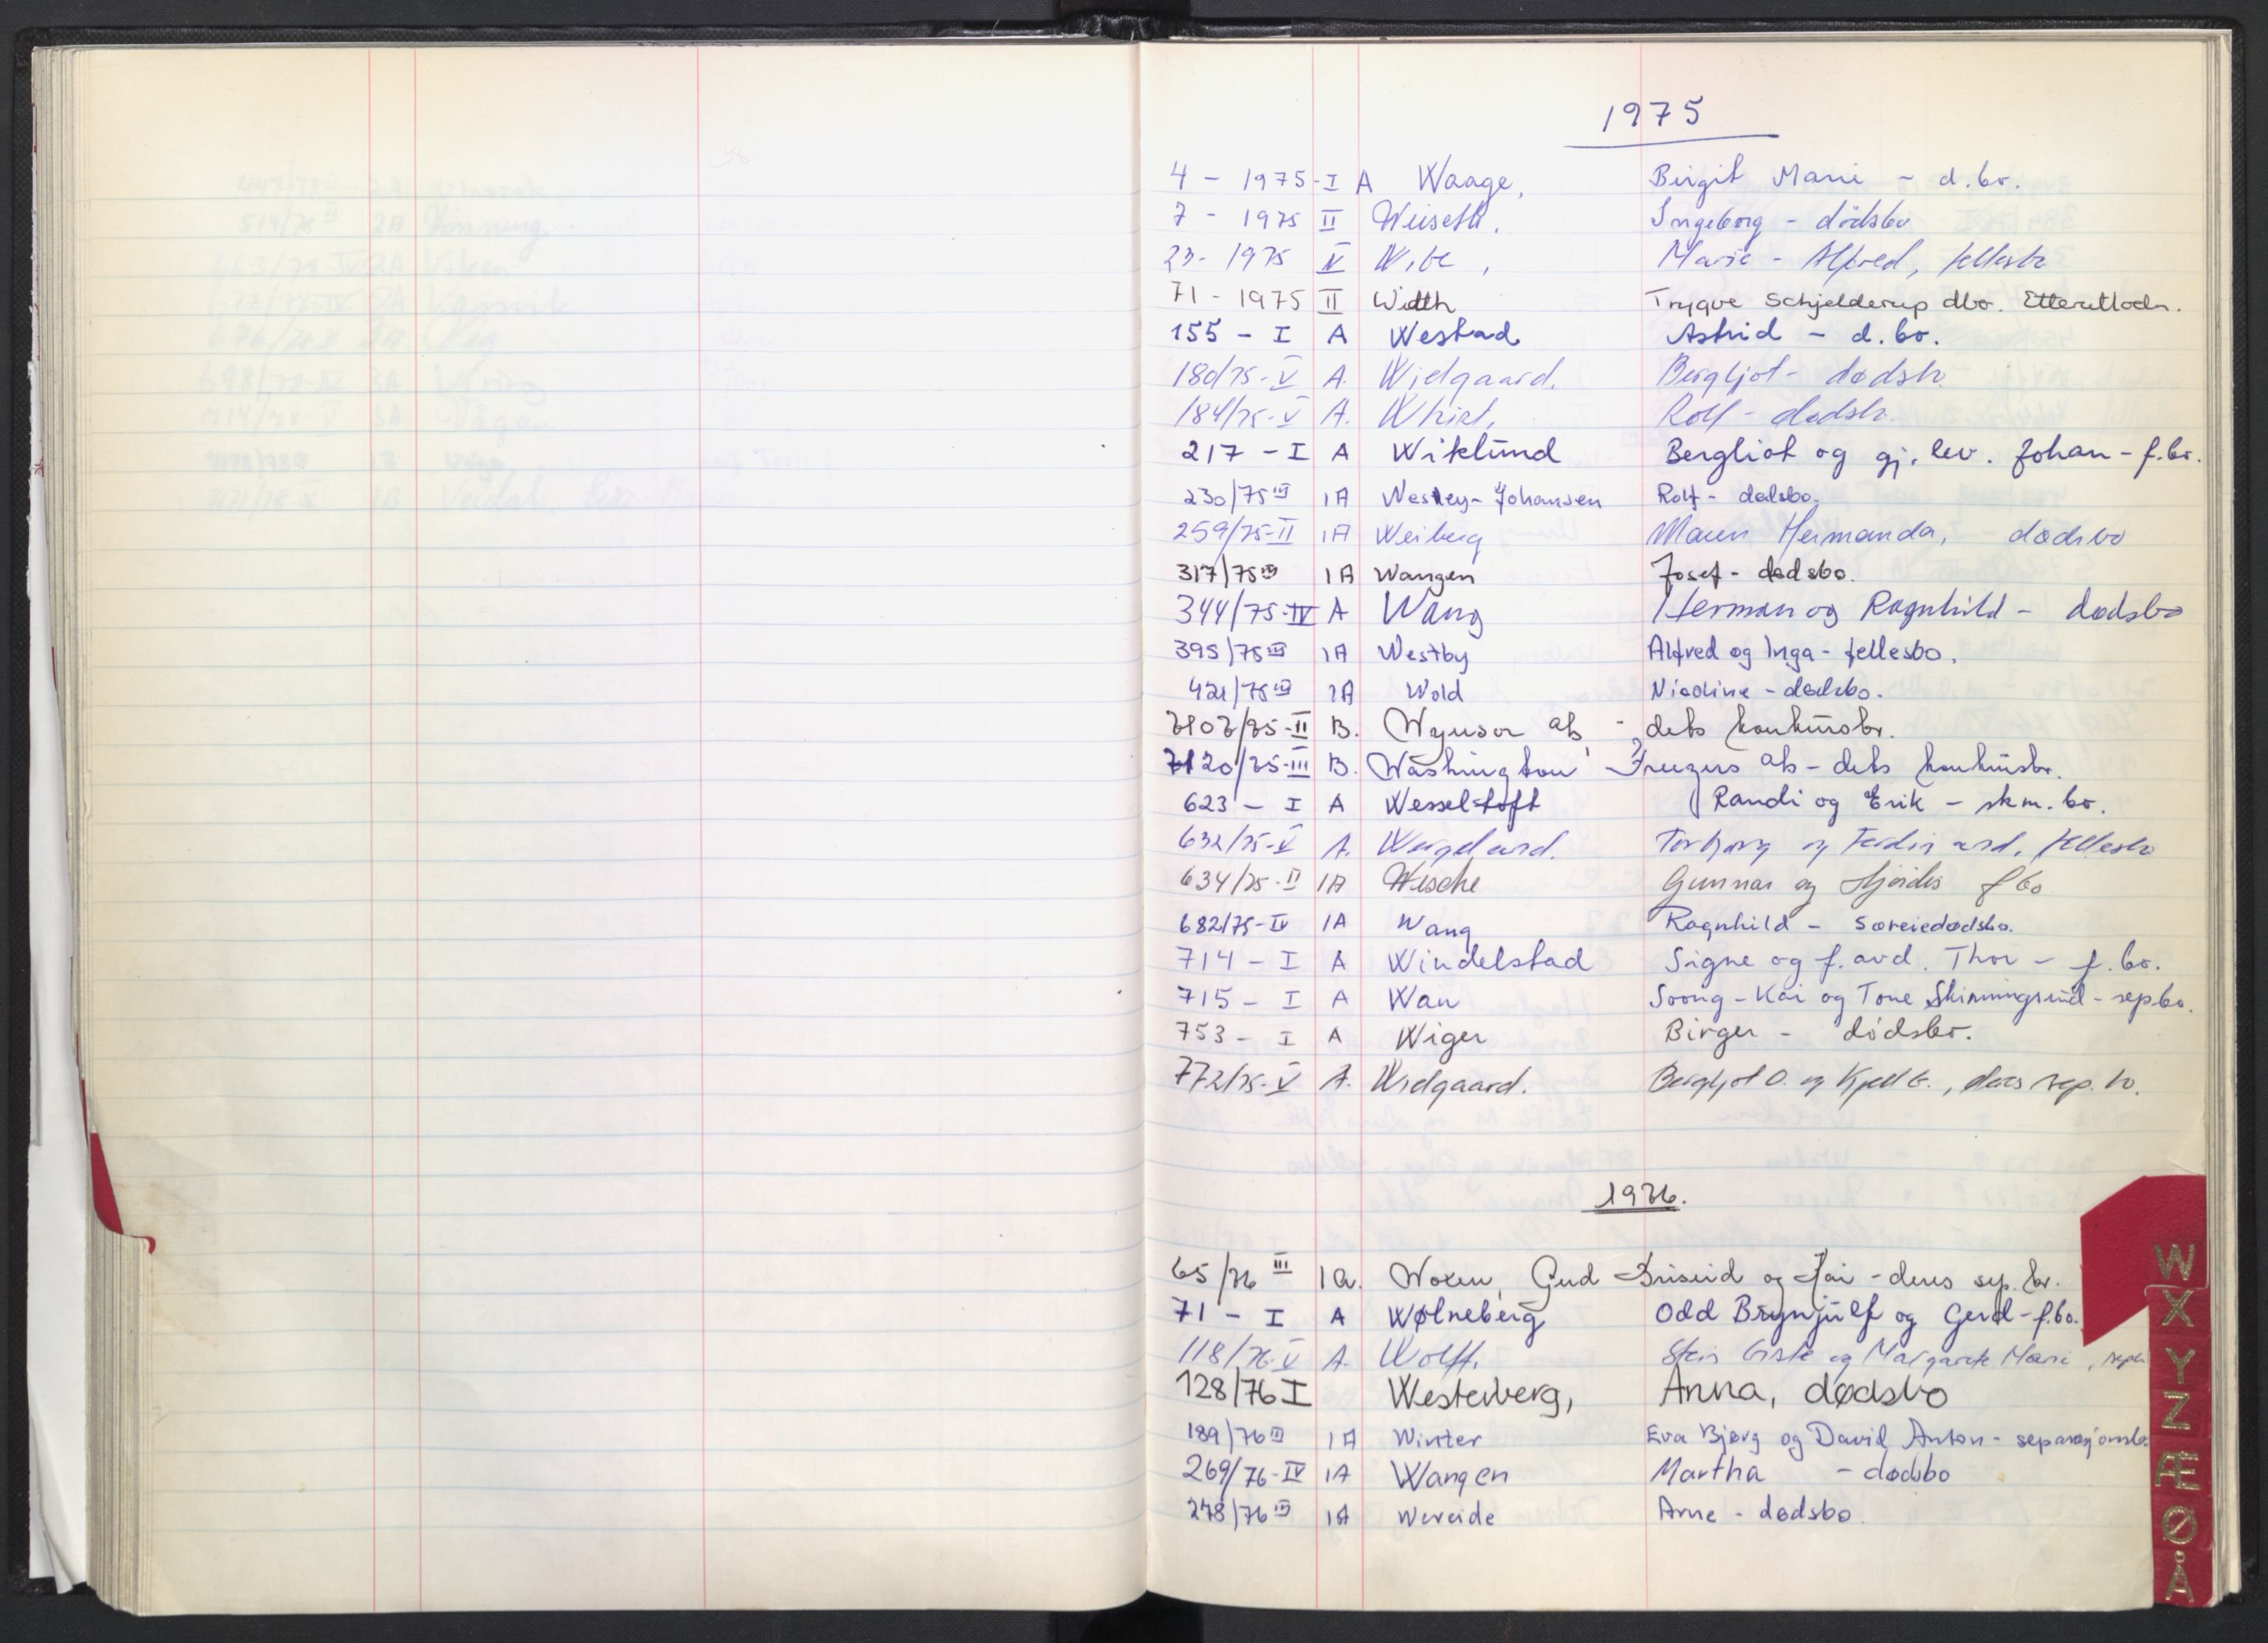 1975
4 - 1975-I A Waage, Birgit Marie - d.bo.
7 - 1975 II Weiseth, Ingeborg - dødsbo
23- 1975 V Wibe, Marie - Alfred, fellesbo
71 - 1975 II Width Trygve Schjelderup dbo.
155 - I A Westad Astrid - d.bo.
180/75-V A. Widgaard. Bergljot - dødsb.
184/75-V A. Rolf - dødsb.
217 - I A Wiklund Bergliot og gj.lev. Johan - f.bo.
230/75 III 1A Westey-Johansen Rolf - dødsbo.
259/75-II 1A Weiberg Maren Hermanda, dødsbo
317/75 III 1A Wangen Josef - dødsbo.
344/75-IV A Wang Herman og Ragnhild - dødsbo
395/75 III 1A Westby Alfred og Inga - fellesbo.
421/75 III 1A Wold Nicoline - dødsbo.
/75-II B. as - dets konkursbo.
7120/75-III B. Washington as - dets konkursbo.
623 - I A Wesseltoft Randi og Erik - skm.bo.
632/75-V A. Torbjørg og Ferdinand, fellesbo
634/75-II 1A Wesche Gunnar og Hjørdis fbo
682/75-IV 1A Wang Ragnhild - særeiedødsbo.
714 - I A Windelstad Signe og f.avd. Thor - f.bo.
715 - I A Wan Soong-Kai og Tone - sep.bo.
753 - I A Wiger Birger - dødsbo.
772/75-V A. Widgaard. Bergljot O. og Kjell E., deres sep.bo.
1976.
65/76 III 1a. Woxen, Gud og Kai - deres sep.bo.
71 - I A Wølneberg Odd Brynjulf og Gerd - f.bo.
118/76-V A. Wolff. Stein Giste og Margarete Marie, sepb
128/76 I Westerberg, Anna, dødsbo
189/76 III 1A Winter Eva Bjørg og David Anton - separasjonsbo.
269/76-IV 1A Wangen Martha - dødsbo
278/76 III 1A Wereide Arne - dødsbo.
W
X
Y
Z
Æ
Ø
Å